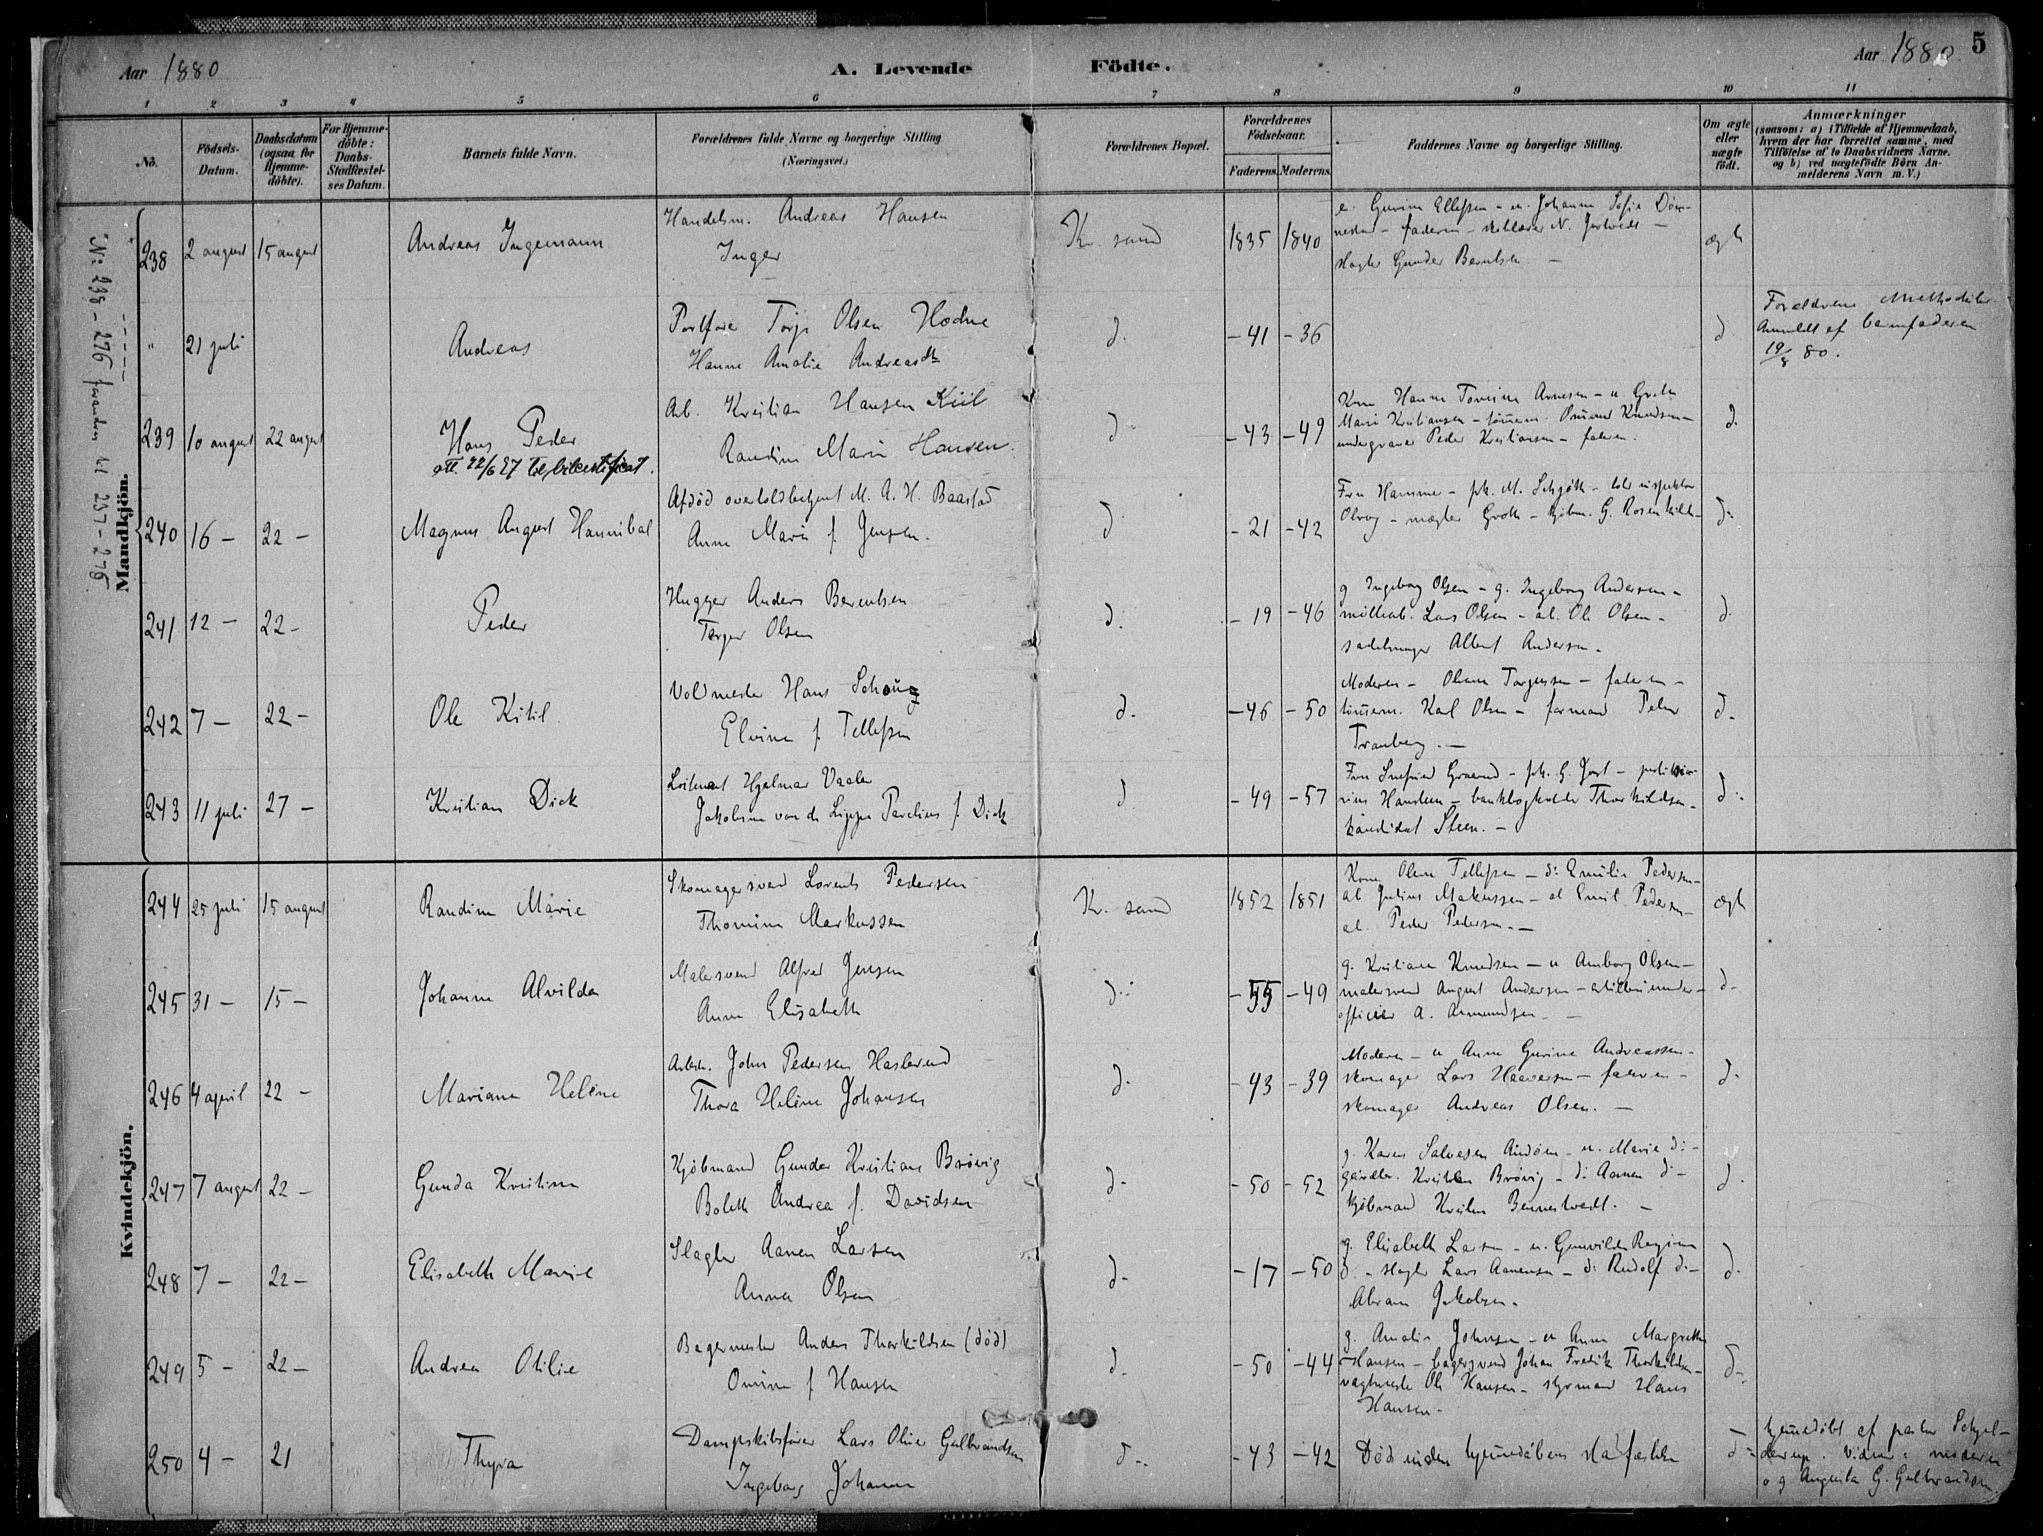 Aar 1880
A. Levende Födte.
Aar 1880
5
1 2 3 4 5 6 7 8 9 10 11
No.
Födsels-Datum.
Daabsdatum (ogsaa for Hjemme-döbte).
For Hjemme-döbte: Daabs-Stadfæstel-ses Datum.
Barnets fulde Navn.
Forældrenes fulde Navne og borgerlige Stilling (Næringsvei.)
Forældrenes Bopæl.
Forældrenes Födselsaar.
Faderens. Moderens.
Faddernes Navne og borgerlige Stilling.
Om ægte eller uægte födt.
Anmærkninger
(saasom: a) i Tilfælde af Hjemmedaab, hvem der har forrettet samme, med Tilföielse af to Daabsvidners Navne, og b) ved uægtefödte Börn An-melderens Navn m. V.)
Mandkjön.
No 238 - 276 forandres til 237 - 275
238 2 august 15 august Andreas Ingemann
Handelsm. Andreas Hansen
Inger
Kr. sand 1835 1840
e. Gurine Ellefsen - u. Johanne Sofie
faderen - N.
slagter Gunder Berntsen -
ægte
" 21 juli Andreas
Torje Olsen Hodne
Hanne Amalie Andreasdtr
d. -41 -36
d
Forældrene Methodister
Anmeldt af barnefaderen
19/8 80.
239 10 august 22 august Hans Peder
att. 22/6 27
Arb. Kristian Hansen Kiil
Randine Marie Hansen.
d -43 -49
Kone Hanne Arnesen - u Grethe
Marie Kristiansen - tömerm. Knudsen -
Peder Kristiansen - faderen.
d.
240 16 - 22 - Magnus August Hannibal
Afdöd overtoldbetjent M. A. H. Baastad
Anne Marie f Jensen.
d -21 -42
Fru Hamme - frk. M. Schjött - told inspektör
- mægler Groth - kjöbm. G. Rosenkilde -
d -
241 12 - 22 - Peder
Hugger Anders Berentsen
Torger Olsen
d. -19 -46
g Ingeborg Olsen - g. Ingeborg Andersen -
möllearb. Lars Olsen - arb. Ole Olsen -
Albert Andersen -
d.
242 7 - 22 - Ole Kitil
Hans Schoug
Elvine f Tellefsen
d. -46 -50
Moderen - Olsen Torgersen - faderen -
tömerm. Karl Olsen - formand Peder
Tranberg. -
d.
243 11 juli 27 - Kristian Dick
Löitnant Hjalmar Vaaler
Jakobine van de Lippe Parelius f. Dick
d -49 -57
Fru - frk. G. Jost -
Hansteen - bankbogholder Thorkildsen -
kandidat Steen. -
d -
Kvindekjön.
244 25 juli 15 august Randine Marie
Skomagersvend Lorents Pedersen
Thomine Markussen
Kr. sand 1852 1851
Kone Olene Tellefsen - d: Emilie Pedersen -
arb Julius Makussen - arb Emil Pedersen -
arb. Peder Pedersen. -
ægte
245 31 - 15 - Johanne Alvilda
Malersvend Alfred Jensen
Anne Elisabeth
d - 55 -49
g. Kristiane Knudsen - u Anborg Olsen -
malersvend August Andersen - artilleriunder-
officier A. Asmundsen -
d -
246 4 april 22 - Mariane Helene
Arbeidsm. John Pedersen Haslerud
Thora Helene Johansen
d - -43 -39
Moderen - u Anne Gurine Andreassen -
skomager Lars Haaversen - faderen -
skomager Andreas Olsen. -
d -
247 7 august 22 - Gunda Kristine
Kjöbmand Gunder Kristians Brövig
Boleth Andrea f. Davidsen
d - -50 -52
g. Karen Salvesen - u. Marie d: -
gaardbr. Kristen Brövig - d: Aanen d: -
kjöbmand Kristen Bennestvedt. -
d -
248 7 - 22 - Elisabeth Marie
Slagter Aanen Larsen
Anna Olsen
d - -17 -50
g. Elisabeth Larsen - u. Gunvilde Regine
d. - slagter Lars Aanensen - d: Rudolf d: -
Abram Jakobsen.
d.
249 5 - 22 - Andrea Otilie
Bagermester Anders Thorkildsen (död)
Omine f Hansen
d - -50 -44
g. Amalie Johnsen - u Anne Margrethe
Hansen - bagersvend Johan Fredrik Thorkildsen -
vagtmester Ole Hansen - styrmand Hans
Hansen -
d -
250 4 - 21 Thyra
Dampskibsförer Lars Olivier Gulbrandsen
Ingeborg Johanne
d - -43 -42
Död inden hjemmedaaben stadfæstedes
d -
hjemmedöbt af pastor Schjel-
derup. Vidner: moderen
og Augusta G. Gulbrandsen.